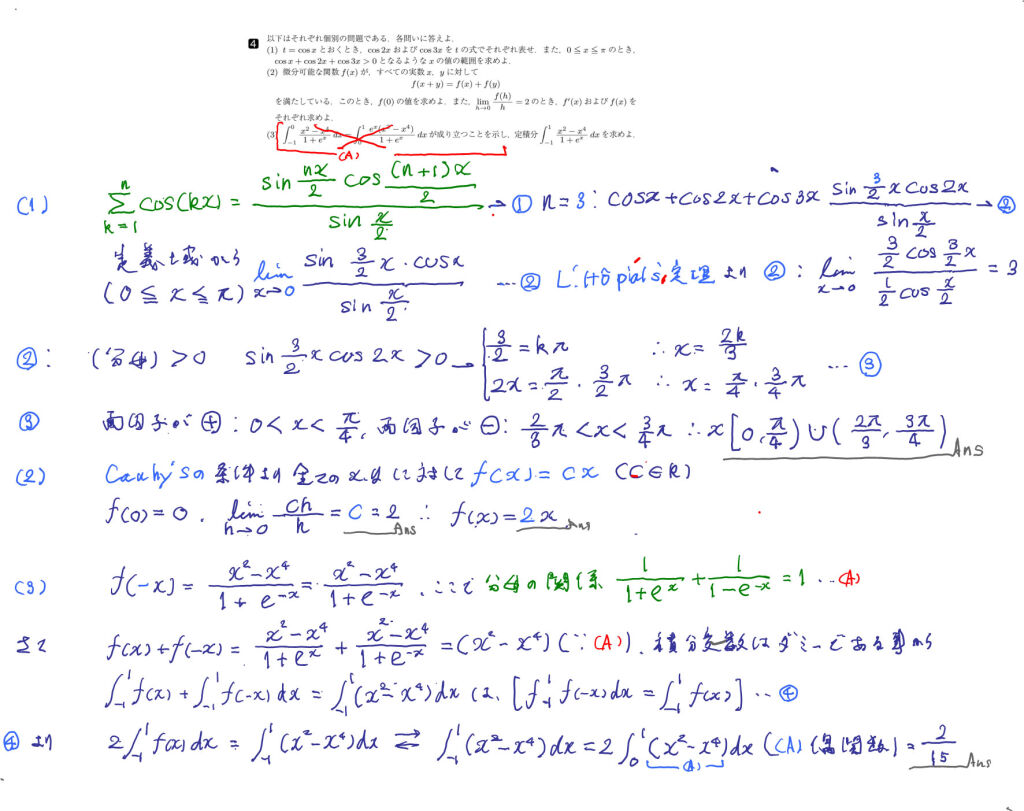 4 以下はそれぞれ個別の問題である．各問いに答えよ．
(1) t = cos x とおくとき，cos 2x および cos 3x を t の式でそれぞれ表せ．また，0 ≦ x ≦ π のとき，
cos x + cos 2x + cos 3x > 0 となるような x の値の範囲を求めよ．
(2) 微分可能な関数 f(x) が，すべての実数 x，y に対して
f(x + y) = f(x) + f(y)
を満たしている．このとき，f(0) の値を求めよ．また，lim_{h→0} f(h)/h = 2 のとき，f′(x) および f(x) を
それぞれ求めよ．
(3) ∫_{-1}^{0} (x² − x⁴)/(1 + e^x) dx = ∫_{0}^{1} e^x(x² − x⁴)/(1 + e^x) dx が成り立つことを示し，定積分 ∫_{-1}^{1} (x² − x⁴)/(1 + e^x) dx を求めよ．
(A)
(1) Σ_{k=1}^{n} cos(kx) = (sin nx/2 cos (n+1)x/2)/(sin x/2) → ① n=3 : cosx+cos2x+cos3x (sin 3/2 x cos2x)/(sin x/2) → ②
定義域から (0≦x≦π) lim_{x→0} (sin 3/2 x・cosx)/(sin x/2) … ② L'Hôpital's定理より ② : lim_{x→0} (3/2 cos 3/2 x)/(1/2 cos x/2) = 3
② : (分母) > 0 sin 3/2 x cos 2x > 0 → { 3/2 = kπ ∴ x = 2k/3
2x = π/2 ・ 3/2 π ∴ x = π/4 ・ 3/4 π … ③
③ 両因子が ⊕ : 0 < x < π/4, 両因子が ⊖ : 2/3 π < x < 3/4 π ∴ x [0, π/4) ∪ (2π/3, 3π/4) Ans
(2) Cauhy'sの条件より全ての x,y に対して f(x) = cx (C∈R)
f(0) = 0 . lim_{h→0} ch/h = C = 2 Ans ∴ f(x) = 2x Ans
(3) f(-x) = (x²−x⁴)/(1+e^{-x}) = (x²−x⁴)/(1+e^{-x}) . ここで 分母の関係 1/(1+e^x) + 1/(1−e^{-x}) = 1 … (A)
よて f(x)+f(-x) = (x²−x⁴)/(1+e^x) + (x²−x⁴)/(1+e^{-x}) = (x²−x⁴) (∵(A)). 積分定数はダミーである事から
∫_{-1}^{1} f(x) + ∫_{-1}^{1} f(-x) dx = ∫_{-1}^{1} (x²−x⁴)dx は [∫_{-1}^{1} f(-x)dx = ∫_{-1}^{1} f(x)] … ④
④ より 2∫_{-1}^{1} f(x)dx = ∫_{-1}^{1} (x²−x⁴)dx ⇄ ∫_{-1}^{1} (x²−x⁴)dx = 2∫_{0}^{1} (x²−x⁴)dx ((A) 偶関数) = 2/15 Ans
(A)